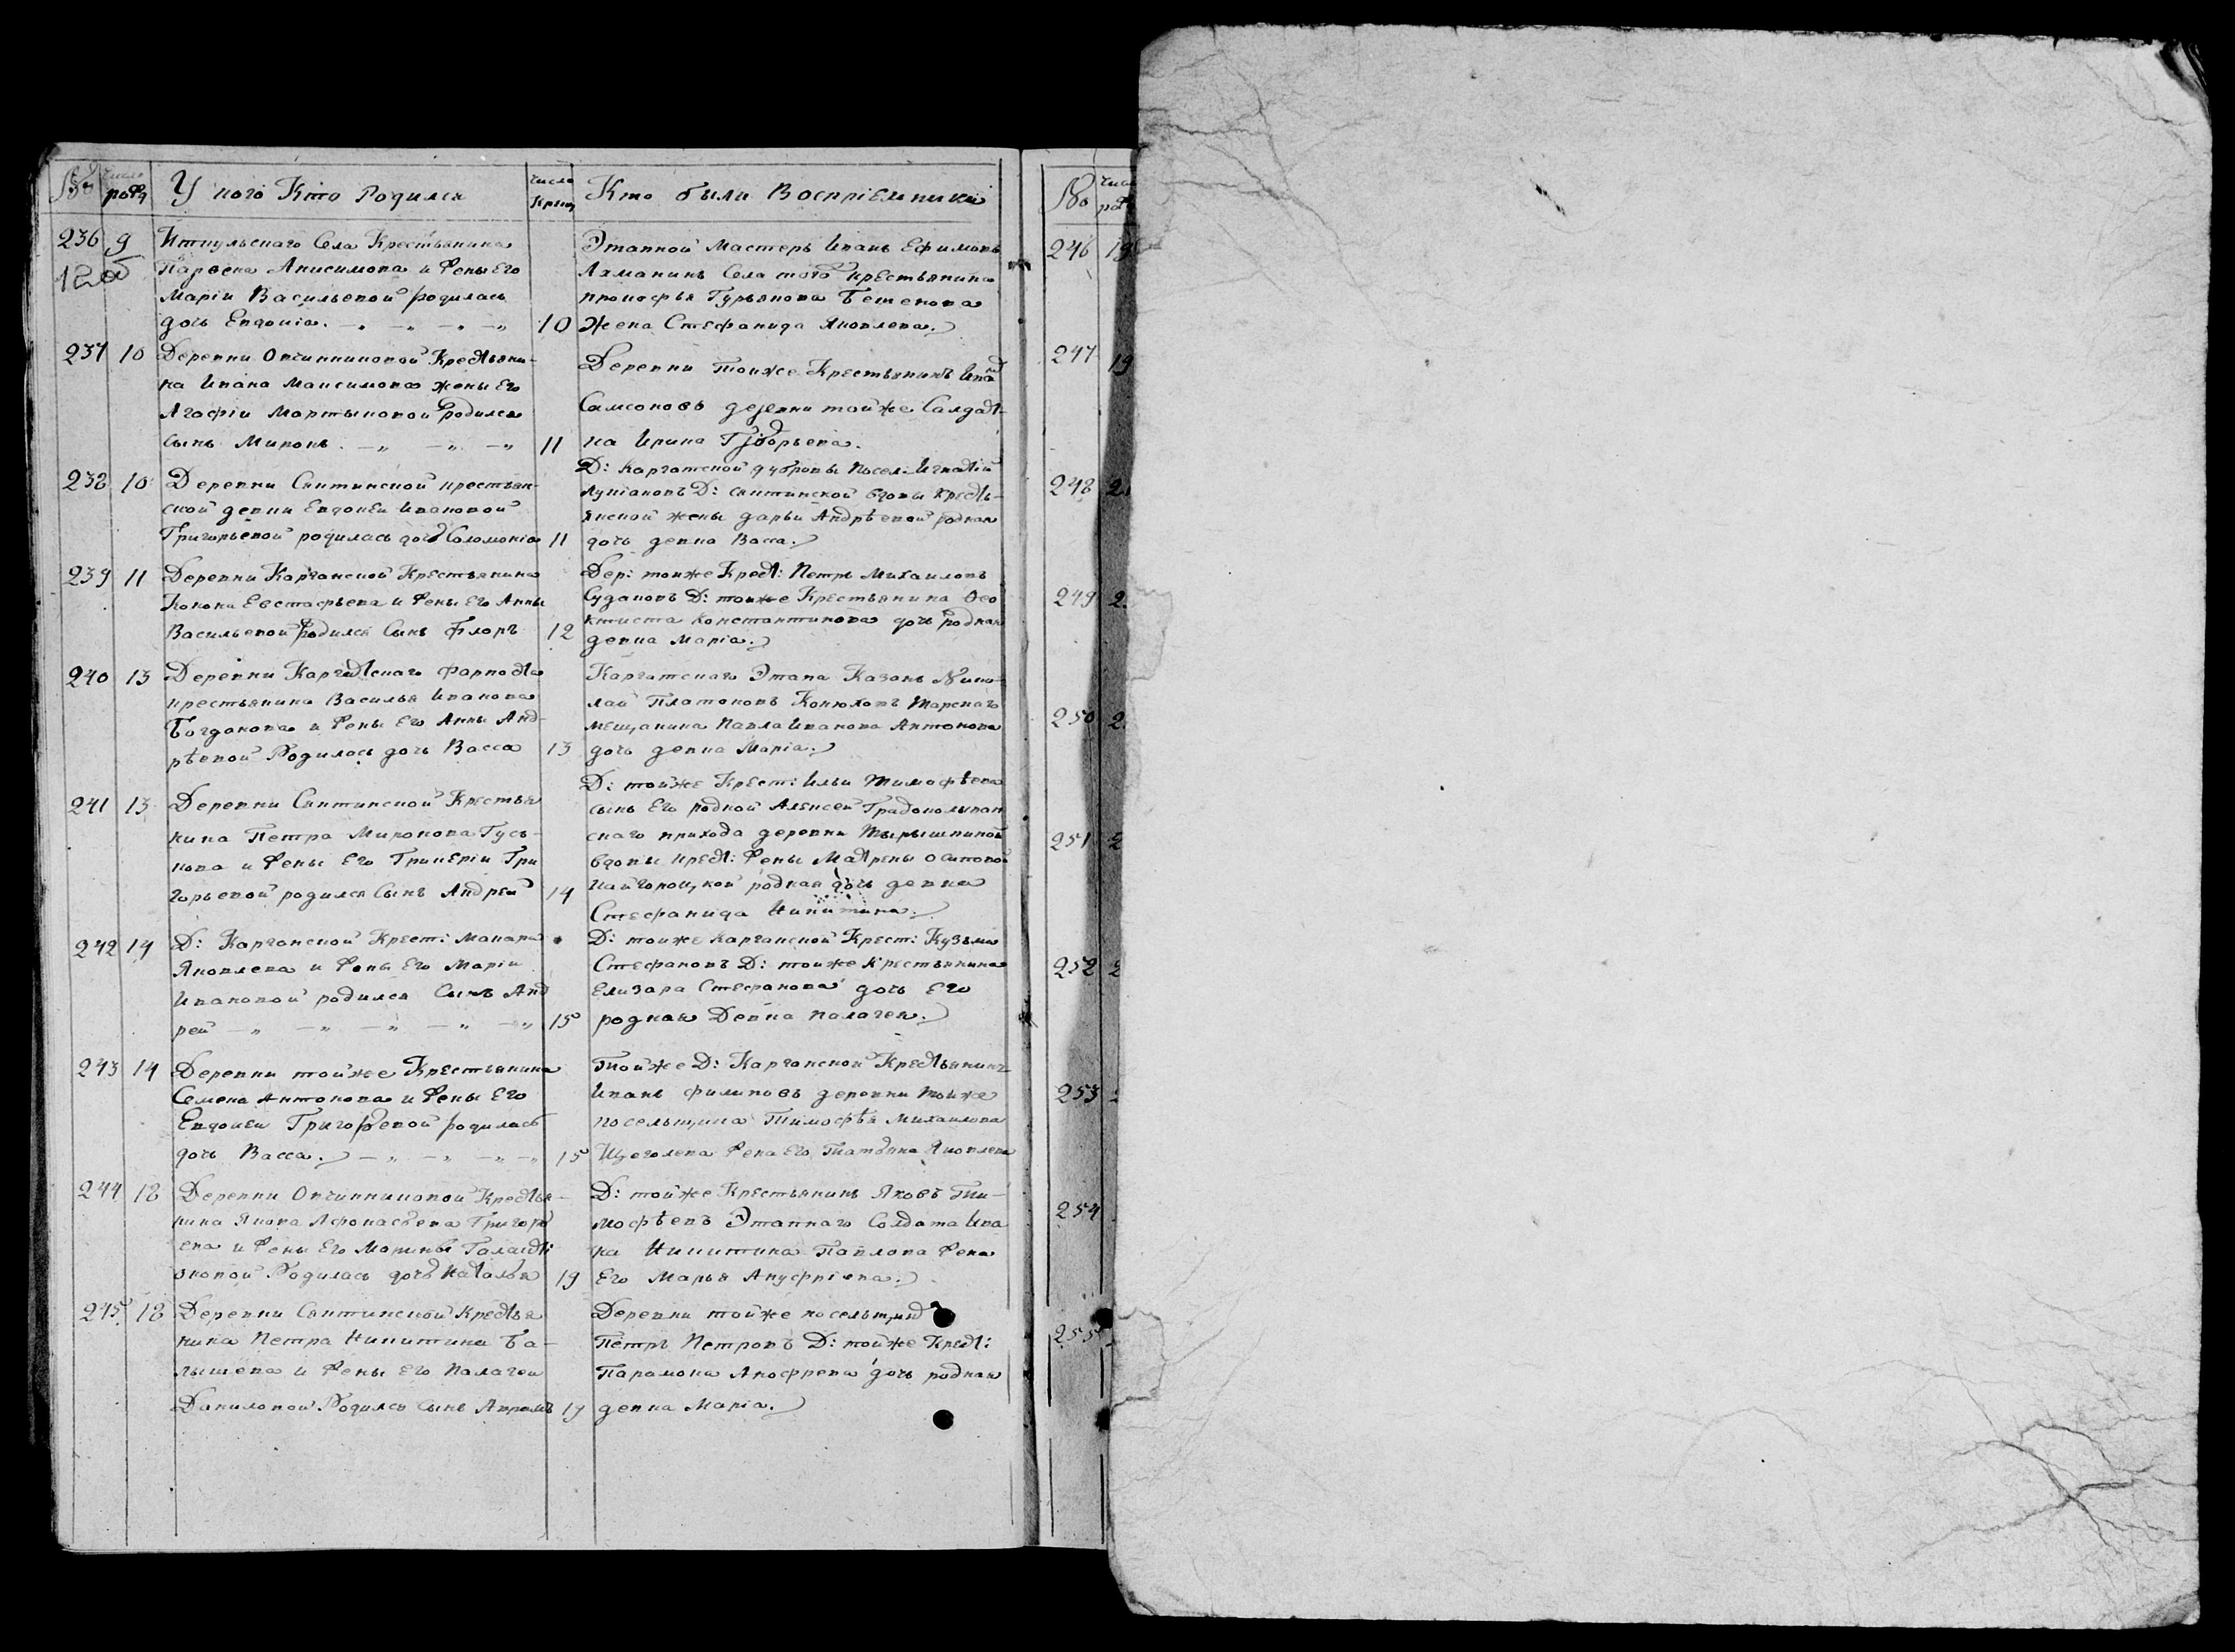 № число рожд У кого Кто Родился числа Крещ Кто были Воспріемники
236 9 Иткульскаго Села Крестьянина
Парфена Анисимова и жены Его
Маріи Васильевой родилась
дочь Евдокіа. 10
Этапной Мастеръ Иванъ Ефимовъ
Лхманинъ Села того крестьянина
прокофья Гурьянова Бешенова
Жена Стефанида Яковлева.
237 10 Деревни Овчинниковой Крестьяни-
на Ивана Максимова жены Его
Агафіи Мартыновой родился
сынъ Миронъ. 11
Деревни тойже Крестьянинъ Иванъ
Самсоновъ деревни тойже Салдат-
ка Ирина Григорьева.
238 10 Деревни Сектинской крестьян-
ской девки Евдокеи Ивановой
Григорьевой родилась дочь Соломоніа 11
Д: Каргатской дубровы посел. Игнатій
Лукіановъ Д: сектинской вдовы кресть-
янской жены дарьи Андрѣевой родная
дочь девка Васса.
239 11 Деревни Карганской Крестьянина
Конона Евстафьева и жены Его Анны
Васильевой родился Сынъ Флоръ 12
Дер: тойже Крест: Петръ Михаиловъ
Судаковъ Д: тойже Крестьянина Фео
ктиста Константинова дочь родная
девка Маріа.
240 13 Деревни Каргатскаго фарпоста
крестьянина Василья Иванова
Богданова и жены Его Анны Анд-
рѣевой Родилась дочь Васса 13
Каргатскаго Этапа Казакъ Нико-
лай Платоновъ Конюховъ Тарскаго
мещанина Павла Иванова Антонова
дочь девка Маріа.
241 13 Деревни Сектинской Крестья
нина Петра Миронова Гусь-
кова и жены Его Гликеріи Гри
горьевой родился Сынъ Андрей 14
Д: тойже Крест: Ильи Тимофѣева
сынъ Его родной Алексей Градоколыван
скаго прихода деревни Тырышкиной
вдовы крест: жены Матрены Осиповой
Кайгородцкой родная дочь девка
Стефанида Никитина.
242 14 Д: Карганской Крест: Макара
Яковлева и жены Его Маріи
Ивановой родился Сынъ Анд
рей 15
Д: тойже Карганской Крест: Кузьма
Стефановъ Д: тойже Крестьянина
Елизара Стефанова дочь Его
родная Девка палагея.
243 14 Деревни тойже Крестьянина
Семена Антонова и жены Его
Евдокеи Григорьевой родилась
дочь Васса. 15
Тойже Д: Карганской Крестьянинъ
Иванъ филиповъ деревни тойже
посельщика Тимофѣя Михаилова
Щеголева жена Его Татьяна Яковлева
244 18 Деревни Овчинниковой Крестья-
нина Якова Афонасьева Григорь
ева и жены Его Марины Галакті
оновой Родилась дочь Наталья 19
Д: тойже Крестьянинъ Яковъ Ти-
мофѣевъ Этапнаго Солдата Ива
на Никитина Павлова жена
Его Марья Ануфріева.
245 18 Деревни Сектинской Крестья
нина Петра Никитина Ба-
лышева и жены Его Палагеи
Даниловой Родился Сынъ Аврамъ 19
Деревни тойже посельщикъ
Петръ Петровъ Д: тойже Крест:
Парамона Анофрева дочь родная
девка Маріа.
№ числ рожд
246 19
247 19
248 2
249 2
250 2
251 2
252 2
253
254
255